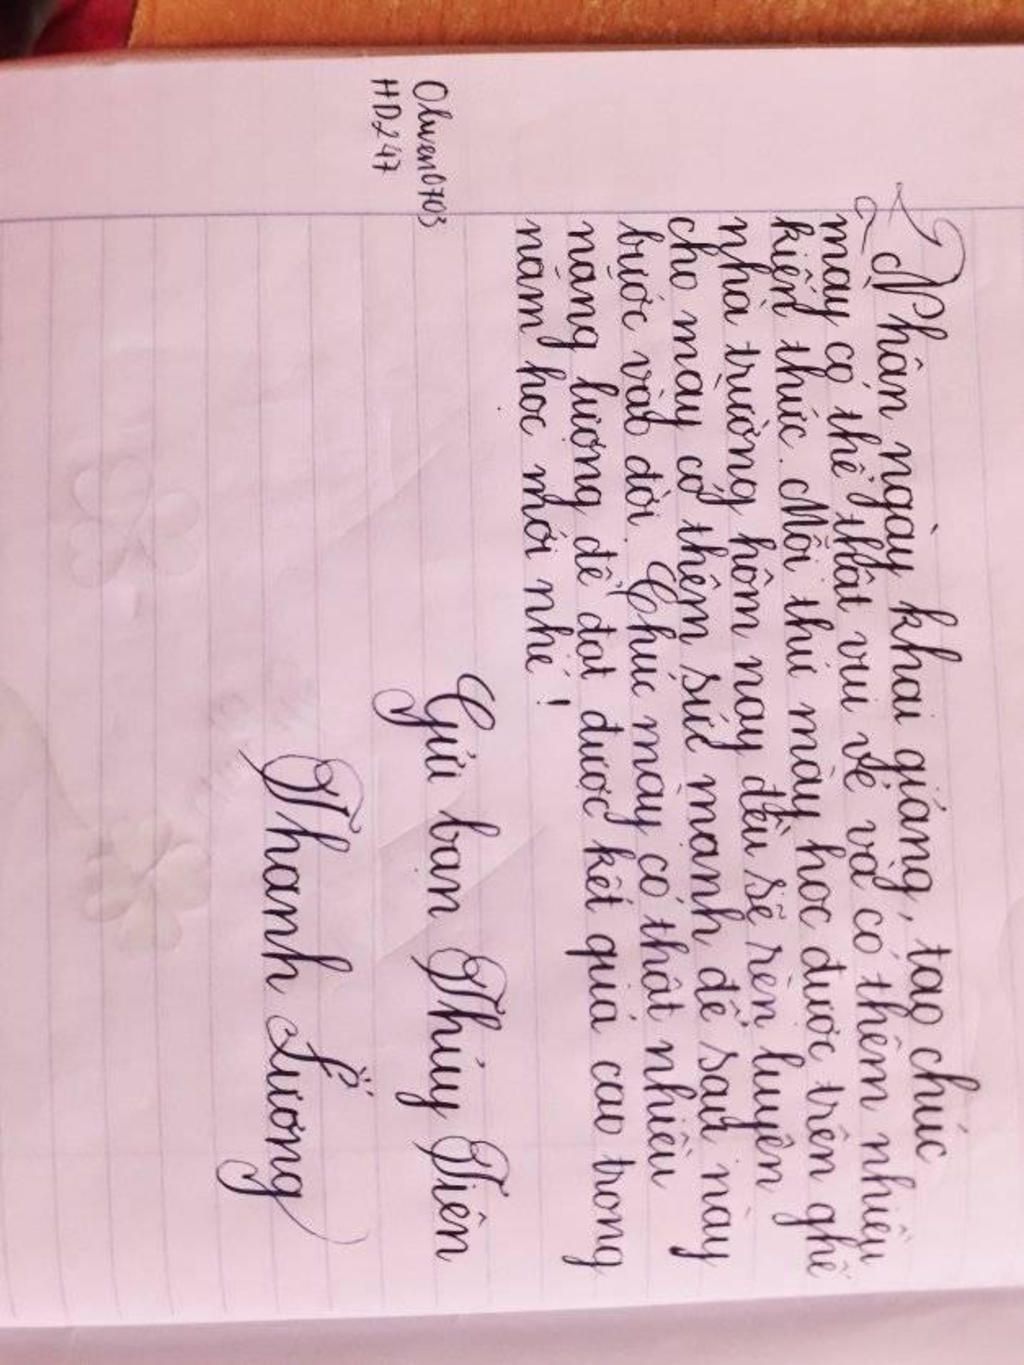 Oliwen0703
HD247
Nhân ngày khai giảng, tao chúc
mày có thể thật vui vẻ và có thêm nhiều
kiến thức. Mỗi thứ mày học được trên ghế
nhà trường hôm nay đều sẽ rèn luyện
cho mày có thêm sức mạnh để sau này
bước vào đời. Chúc mày có thật nhiều
năng lượng để đạt được kết quả cao trong
năm học mới nhé!
Gửi bạn Thủy Tiên
Thanh Lương